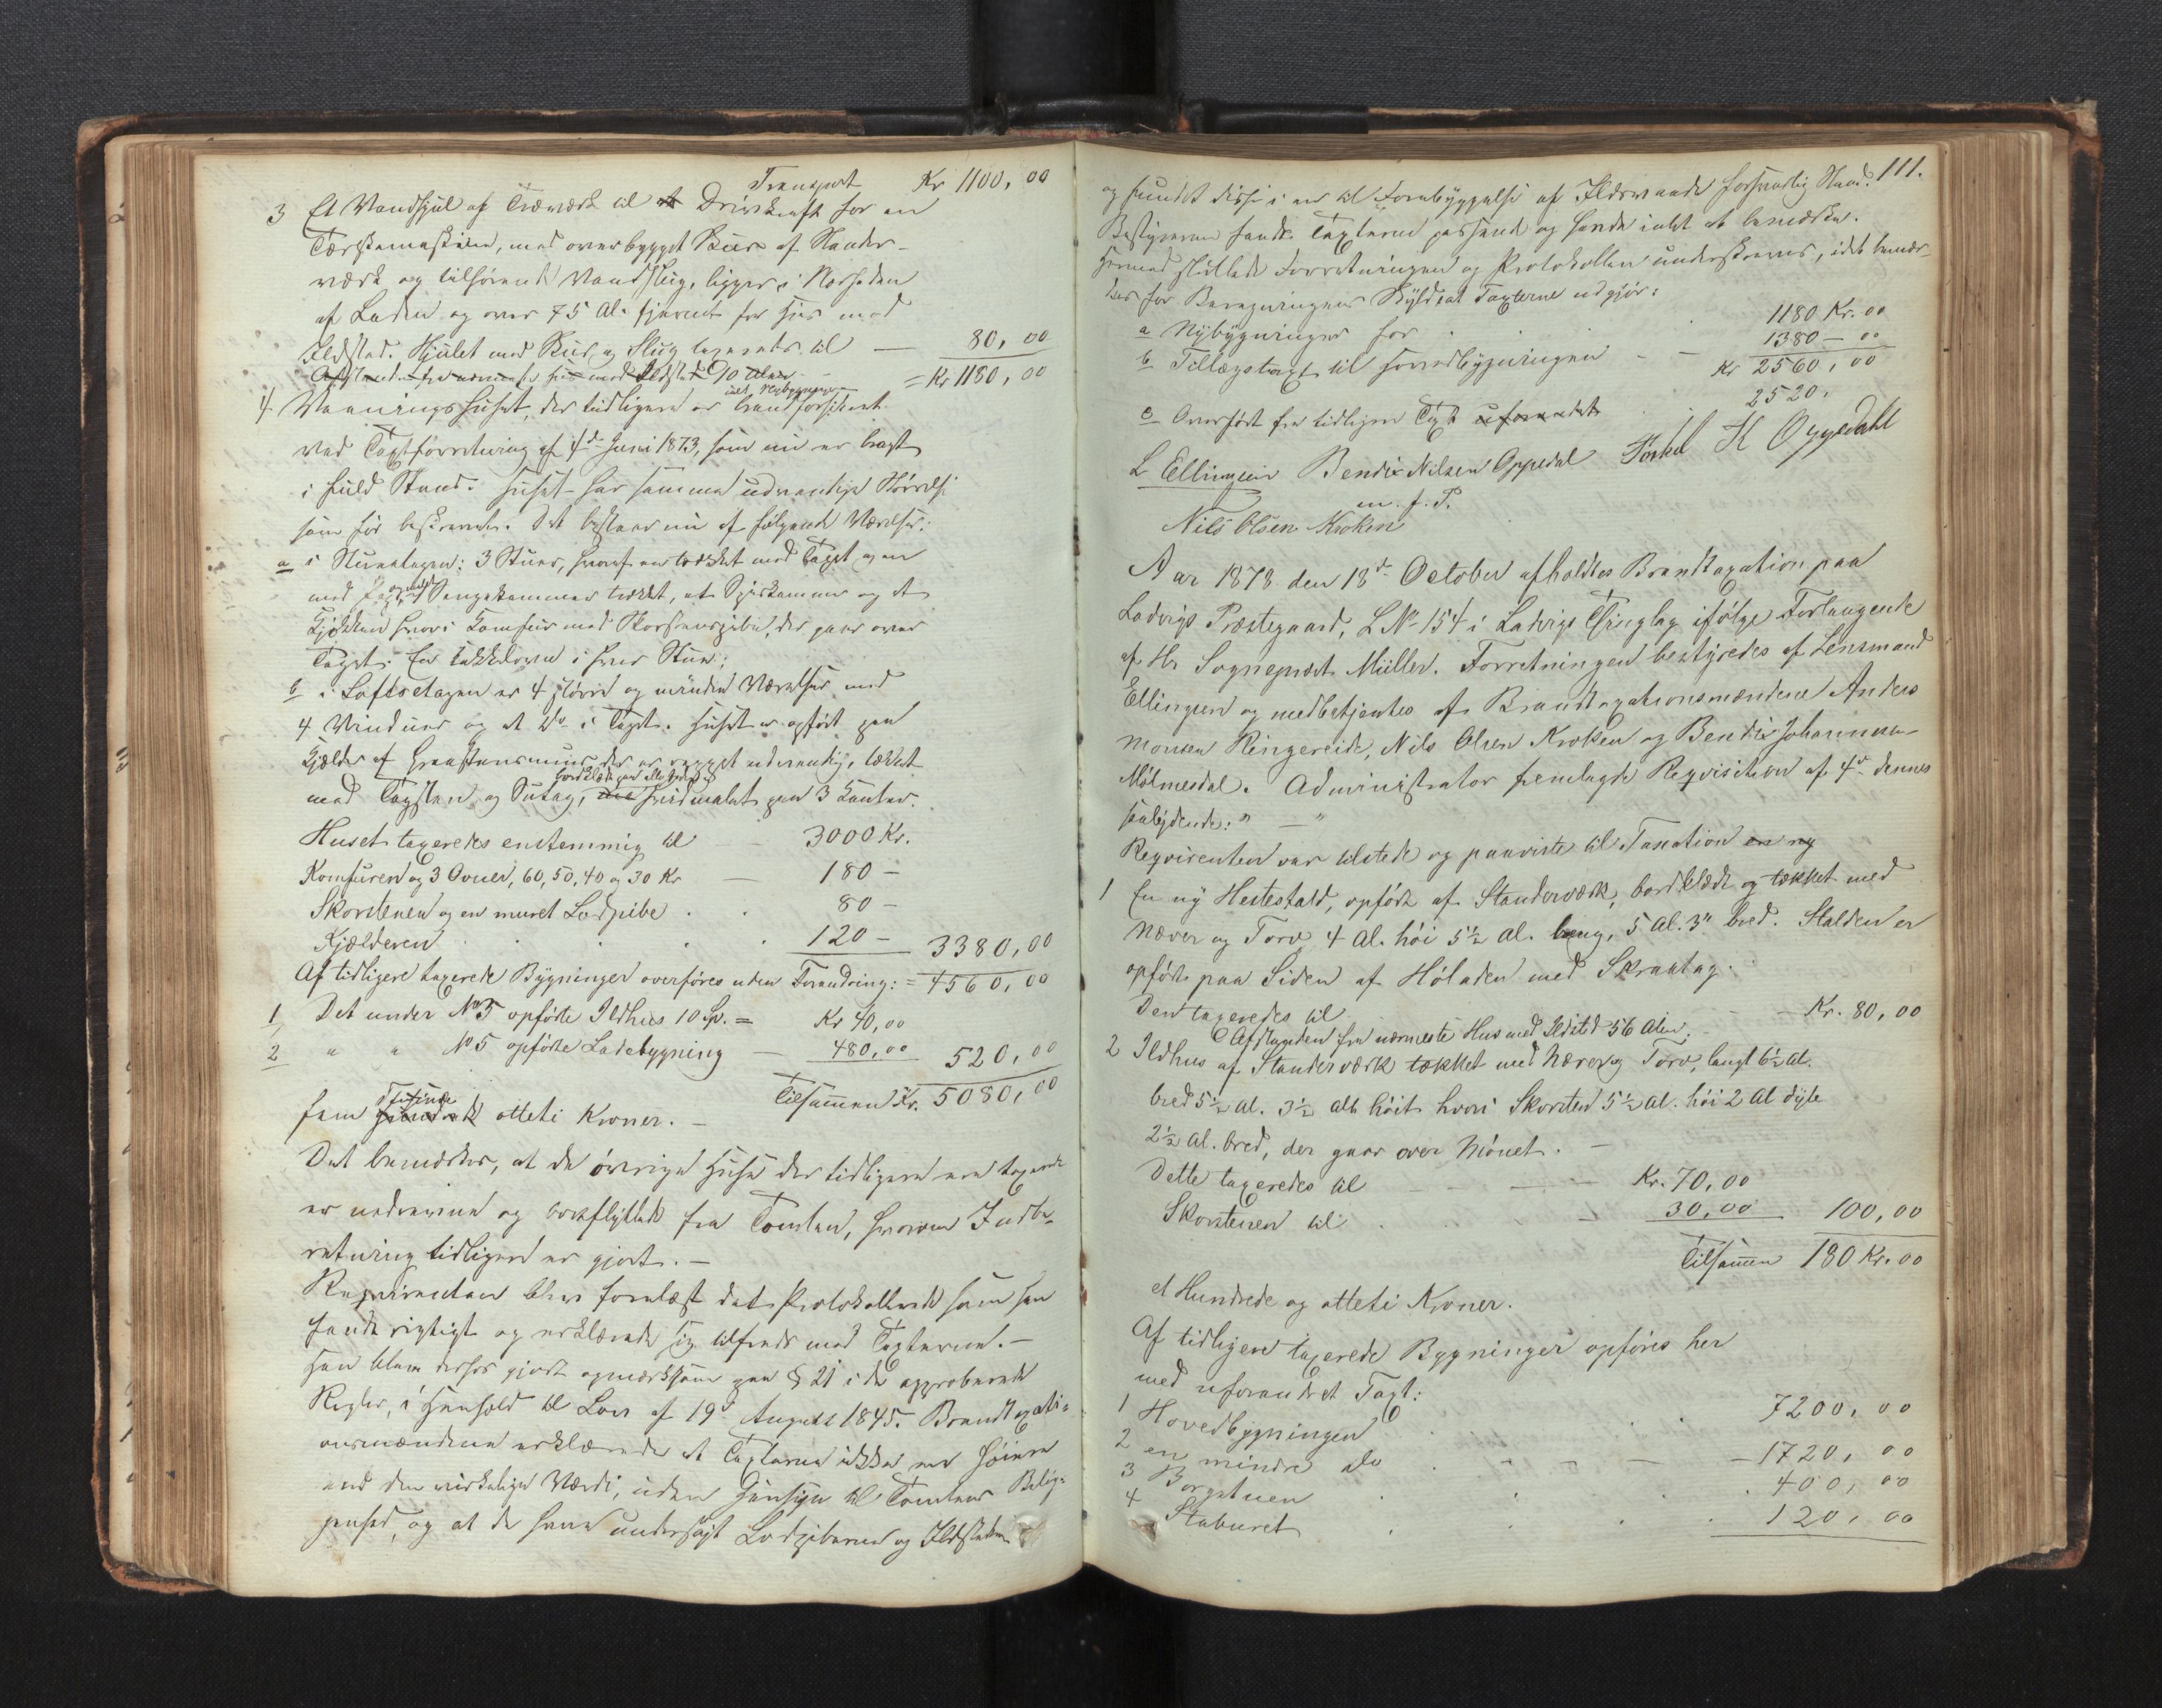 Transport Kr 1100,00
3 Et Vandhjul af Træværk til Drivkraft for en
Tærskemaskine, med overbygget Skur af Stander-
værk og tilhørende Vandslug, ligger i Nærheden
af Laden og over 75 Al. fjernet fra Huse med
Ildsted. Hjulet med Skur og Slug taxeredes til — 80,00
Afstanden fra nærmeste Hus med Ildsted 70 Alen = Kr 1180,00
4 Vaaningshuset, der tidligere er brandforsikret
ved Taxtforretning af 4de Juni 1873, som nu er bragt
i fuld Stand. Huset har samme udvendige Størrelse
som før beskrevet. Det bestaar nu af følgende Værelser:
a i Stueetagen: 3 Stuer, hvoraf en trækket med Tapet og en
med Sengekammer trækket, et Spiskammer og et
Kjøkken hvori Komfur med Skorstenspibe, der gaar over
Taget. En Kakkelovn i hver Stue;
b i Loftsetagen er 4 større og mindre Værelser med
4 Vinduer og et do i Taget. Huset er opført paa
Kjælder af Graastensmuur, der er udvendig, tækket
med Tagsten og Sutag, hvidmalet paa 3 Kanter.
Huset taxeredes enstemmig til — 3000 Kr.
Komfuren og 3 Ovner, 60, 50, 40 og 30 Kr — 180 —
Skorstenen og en muret Lodpibe . . 80 —
Kjælderen . . . . 120 — 3380,00
Af tidligere taxerede Bygninger overføres uden Forandring: = 4560,00
1 Det under No 5 opførte Ildhus 10 Sp. = Kr 40,00
2 " " No 5 opførte Ladebygning — 480,00 520,00
Tilsammen Kr. 5080,00
fem Tusinde otteti Kroner. —
Det bemærkes, at de øvrige Huse der tidligere ere taxerede
er nedrevne og bortflyttede fra Tomten, hvorom Indbe-
retning tidligere er gjort. —
Reqvirenten blev forelæst det Protokollerede som han
fandt rigtigt og erklærede sig tilfreds med Taxterne. —
Han blev derhos gjort opmærksom paa § 21 i de approberede
Regler, i Henhold til Lov af 19de August 1845. Brandtaxati-
onsmændene erklærede at Taxterne ikke ere høiere
end den virkelige Værdi, uden Hensyn til Tomtens Belig-
genhed, og at de have undersøgt Lodpiberne og Ildstederne
111.
og fundet disse i en til Forebyggelse af Ildsvaade forsvarlig Stand.
Bestyreren fandt Taxterne passende og havde intet at bemærke.
Hermed sluttede Forretningen og Protokollen underskreves, idet bemær-
kes for Beregningens Skyld at Taxterne udgjør:
a Nybygninger for . . . 1180 Kr. 00
b Tillægstaxt til Hovedbygningen — — 1380 — 00
Kr 2560,00
c Overført fra tidligere Taxt uforandret . 2520.
L Ellingsen Bendix Nilsen Oppedal Torkel K Oppedahl
m. f. P.
Nils Olsen Kroken
Aar 1878 den 18de October afholdtes Brandtaxation paa
Ladvigs Præstegaard, L No 154 i Ladvigs Thinglag ifølge Forlangende
af Hr Sognepræst Müller. Forretningen bestyredes af Lensmand
Ellingsen og medbetjentes af Brandtaxationsmændene Anders
Monsen Ringereide, Nils Olsen Kroken og Bendix Johannesen
Mølmesdal. Administrator fremlagde Reqvisition af 4de dennes
saalydende: " — "
Reqvirenten var tilstede og paaviste til Taxation en ny
1 En ny Hestestald, opført af Standerværk, bordklædt og tækket med
Næver og Torv, 4 Al. høi 5½ Al. lang, 5 Al. 3" bred. Stalden er
opført paa Siden af Høladen med Skraatag.
Den taxeredes til — — Kr. 80,00
Afstanden fra nærmeste Hus med Ildsted 56 Alen.
2 Ildhus af Standerværk tækket med Næver og Torv, langt 6½ Al.
bred 5½ Al. 3½ Al. høit hvori Skorsten 5½ Al. høi 2 Al dyb
2½ Al. bred, der gaar over Mønet. —
Dette taxeredes til — — — Kr. 70,00
Skorstenen til . . . 30,00 100,00
Tilsammen 180 Kr. 00
et Hundrede og otteti Kroner.
Af tidligere taxerede Bygninger opføres her
med uforandret Taxt:
1 Hovedbygningen . . . 7200,00
2 en mindre do . — — — 1720,00
3 Borgstuen . . . 400,00
4 Staburet . . . 120,00